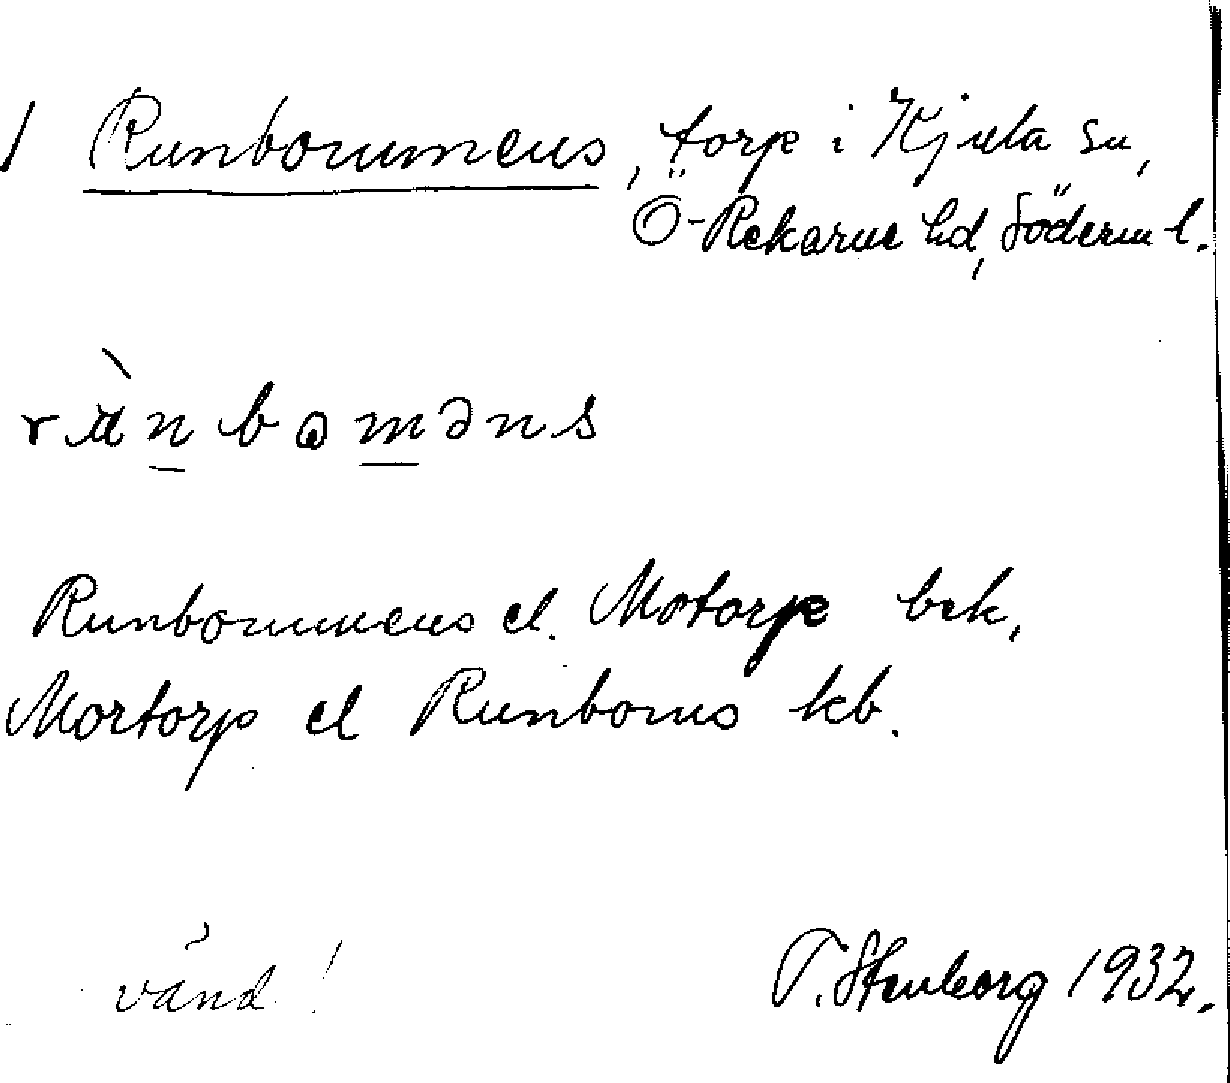 / Runbommens, torp i Kjula sn,
Ö-Rekarne hd, Söderm l.
rùnboməns
Runbommens el. Motorp bek,
Mortorp el Runboms kb.
vänd!
T. Stenborg 1932.